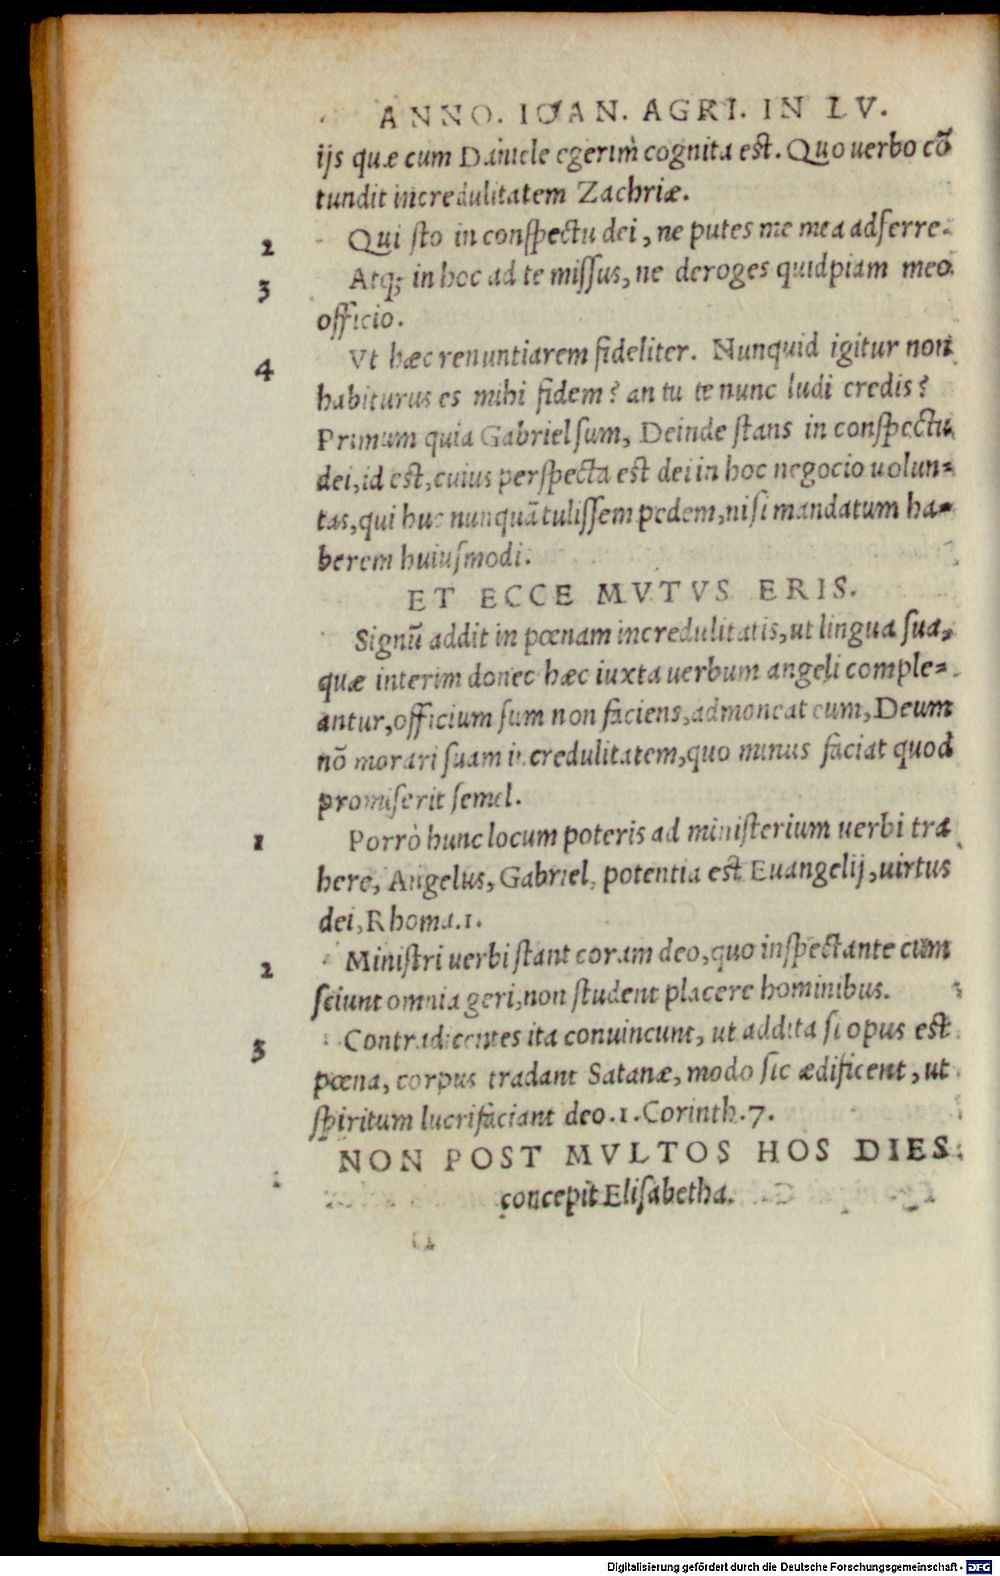 ANNO. IOAN. AGRI. IN LV.
ijs quæ cum Daniele egerim cognita est. Quo uerbo cõ
tundit incredulitatem Zachriæ.
2 Qui sto in conspectu dei, ne putes me mea adferre.
3 Atq; in hoc ad te missus, ne deroges quidpiam meo
officio.
4 Vt hæc renuntiarem fideliter. Nunquid igitur non
habiturus es mihi fidem? an tu te nunc ludi credis?
Primum quia Gabriel sum, Deinde stans in conspectu
dei, id est, cuius perspecta est dei in hoc negocio uolun=
tas, qui huc nunquã tulissem pedem, nisi mandatum ha=
berem huiusmodi.
ET ECCE MVTVS ERIS.
Signũ addit in pœnam incredulitatis, ut lingua sua,
quæ interim donec hæc iuxta uerbum angeli comple=
antur, officium sum non faciens, admoneat eum, Deum
nõ morari suam incredulitatem, quo minus faciat quod
promiserit semel.
1 Porrò hunc locum poteris ad ministerium uerbi tra
here, Angelus, Gabriel, potentia est Euangelij, uirtus
dei, Rhoma.1.
2 Ministri uerbi stant coram deo, quo inspectante cum
sciunt omnia geri, non student placere hominibus.
3 Contradicentes ita conuincunt, ut addita si opus est
pœna, corpus tradant Satanæ, modo sic ædificent, ut
spiritum lucrifaciant deo.1.Corinth.7.
NON POST MVLTOS HOS DIES
concepit Elisabetha.
Digitalisierung gefördert durch die Deutsche Forschungsgemeinschaft - DFG